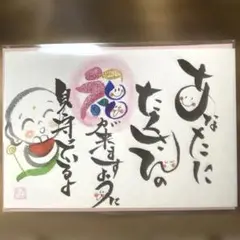 あなたに
たくさんの
笑顔が来ますように
見守っているよ